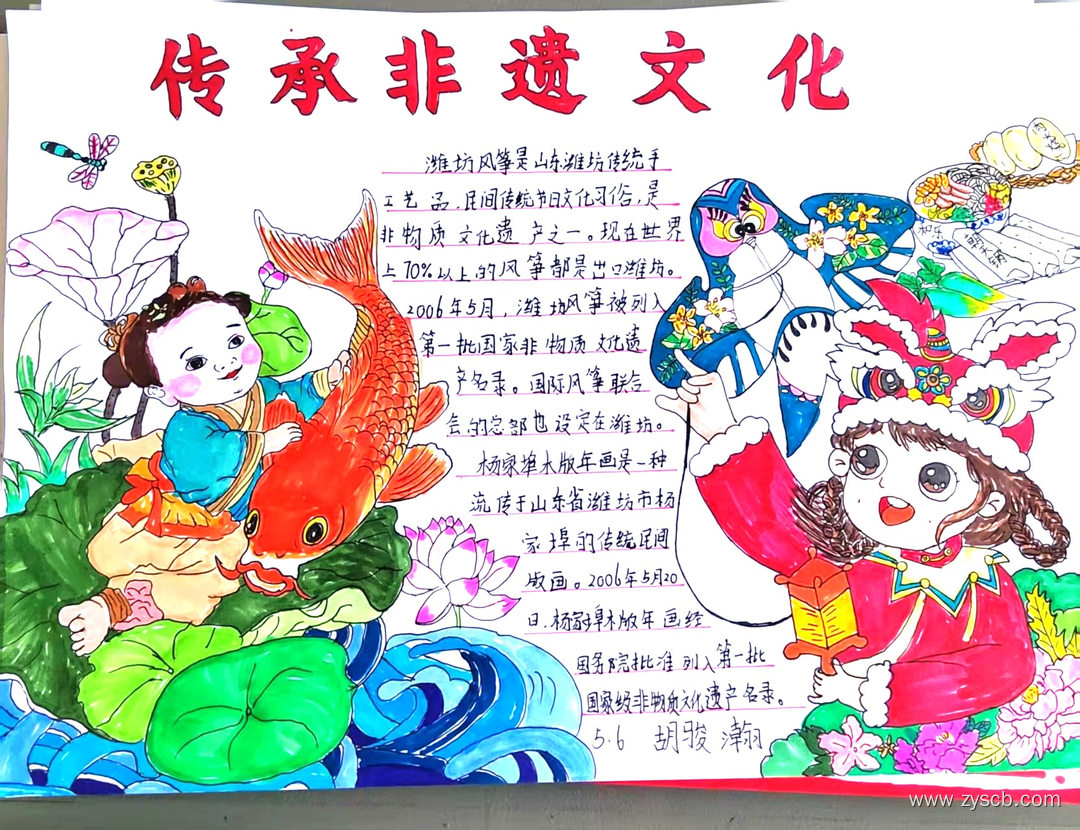 传承非遗文化
潍坊风筝是山东潍坊传统手
工艺品,民间传统节日文化习俗,是
非物质文化遗产之一。现在世界
上70%以上的风筝都是出口潍坊。
2006年5月,潍坊风筝被列入
第一批国家非物质文化遗
产名录。国际风筝联合
会的总部也设定在潍坊。
杨家埠木版年画是一种
流传于山东省潍坊市杨
家埠的传统民间
版画。2006年5月20
日.杨家埠木版年画经
国务院批准列入第一批
国家级非物质文化遗产名录。
5.6 胡骏瀚
和乐
www.zyscb.com